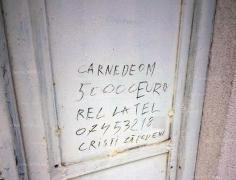 CARNEDEOM
50000EURO
REL LA TEL
07453218
CRISTI